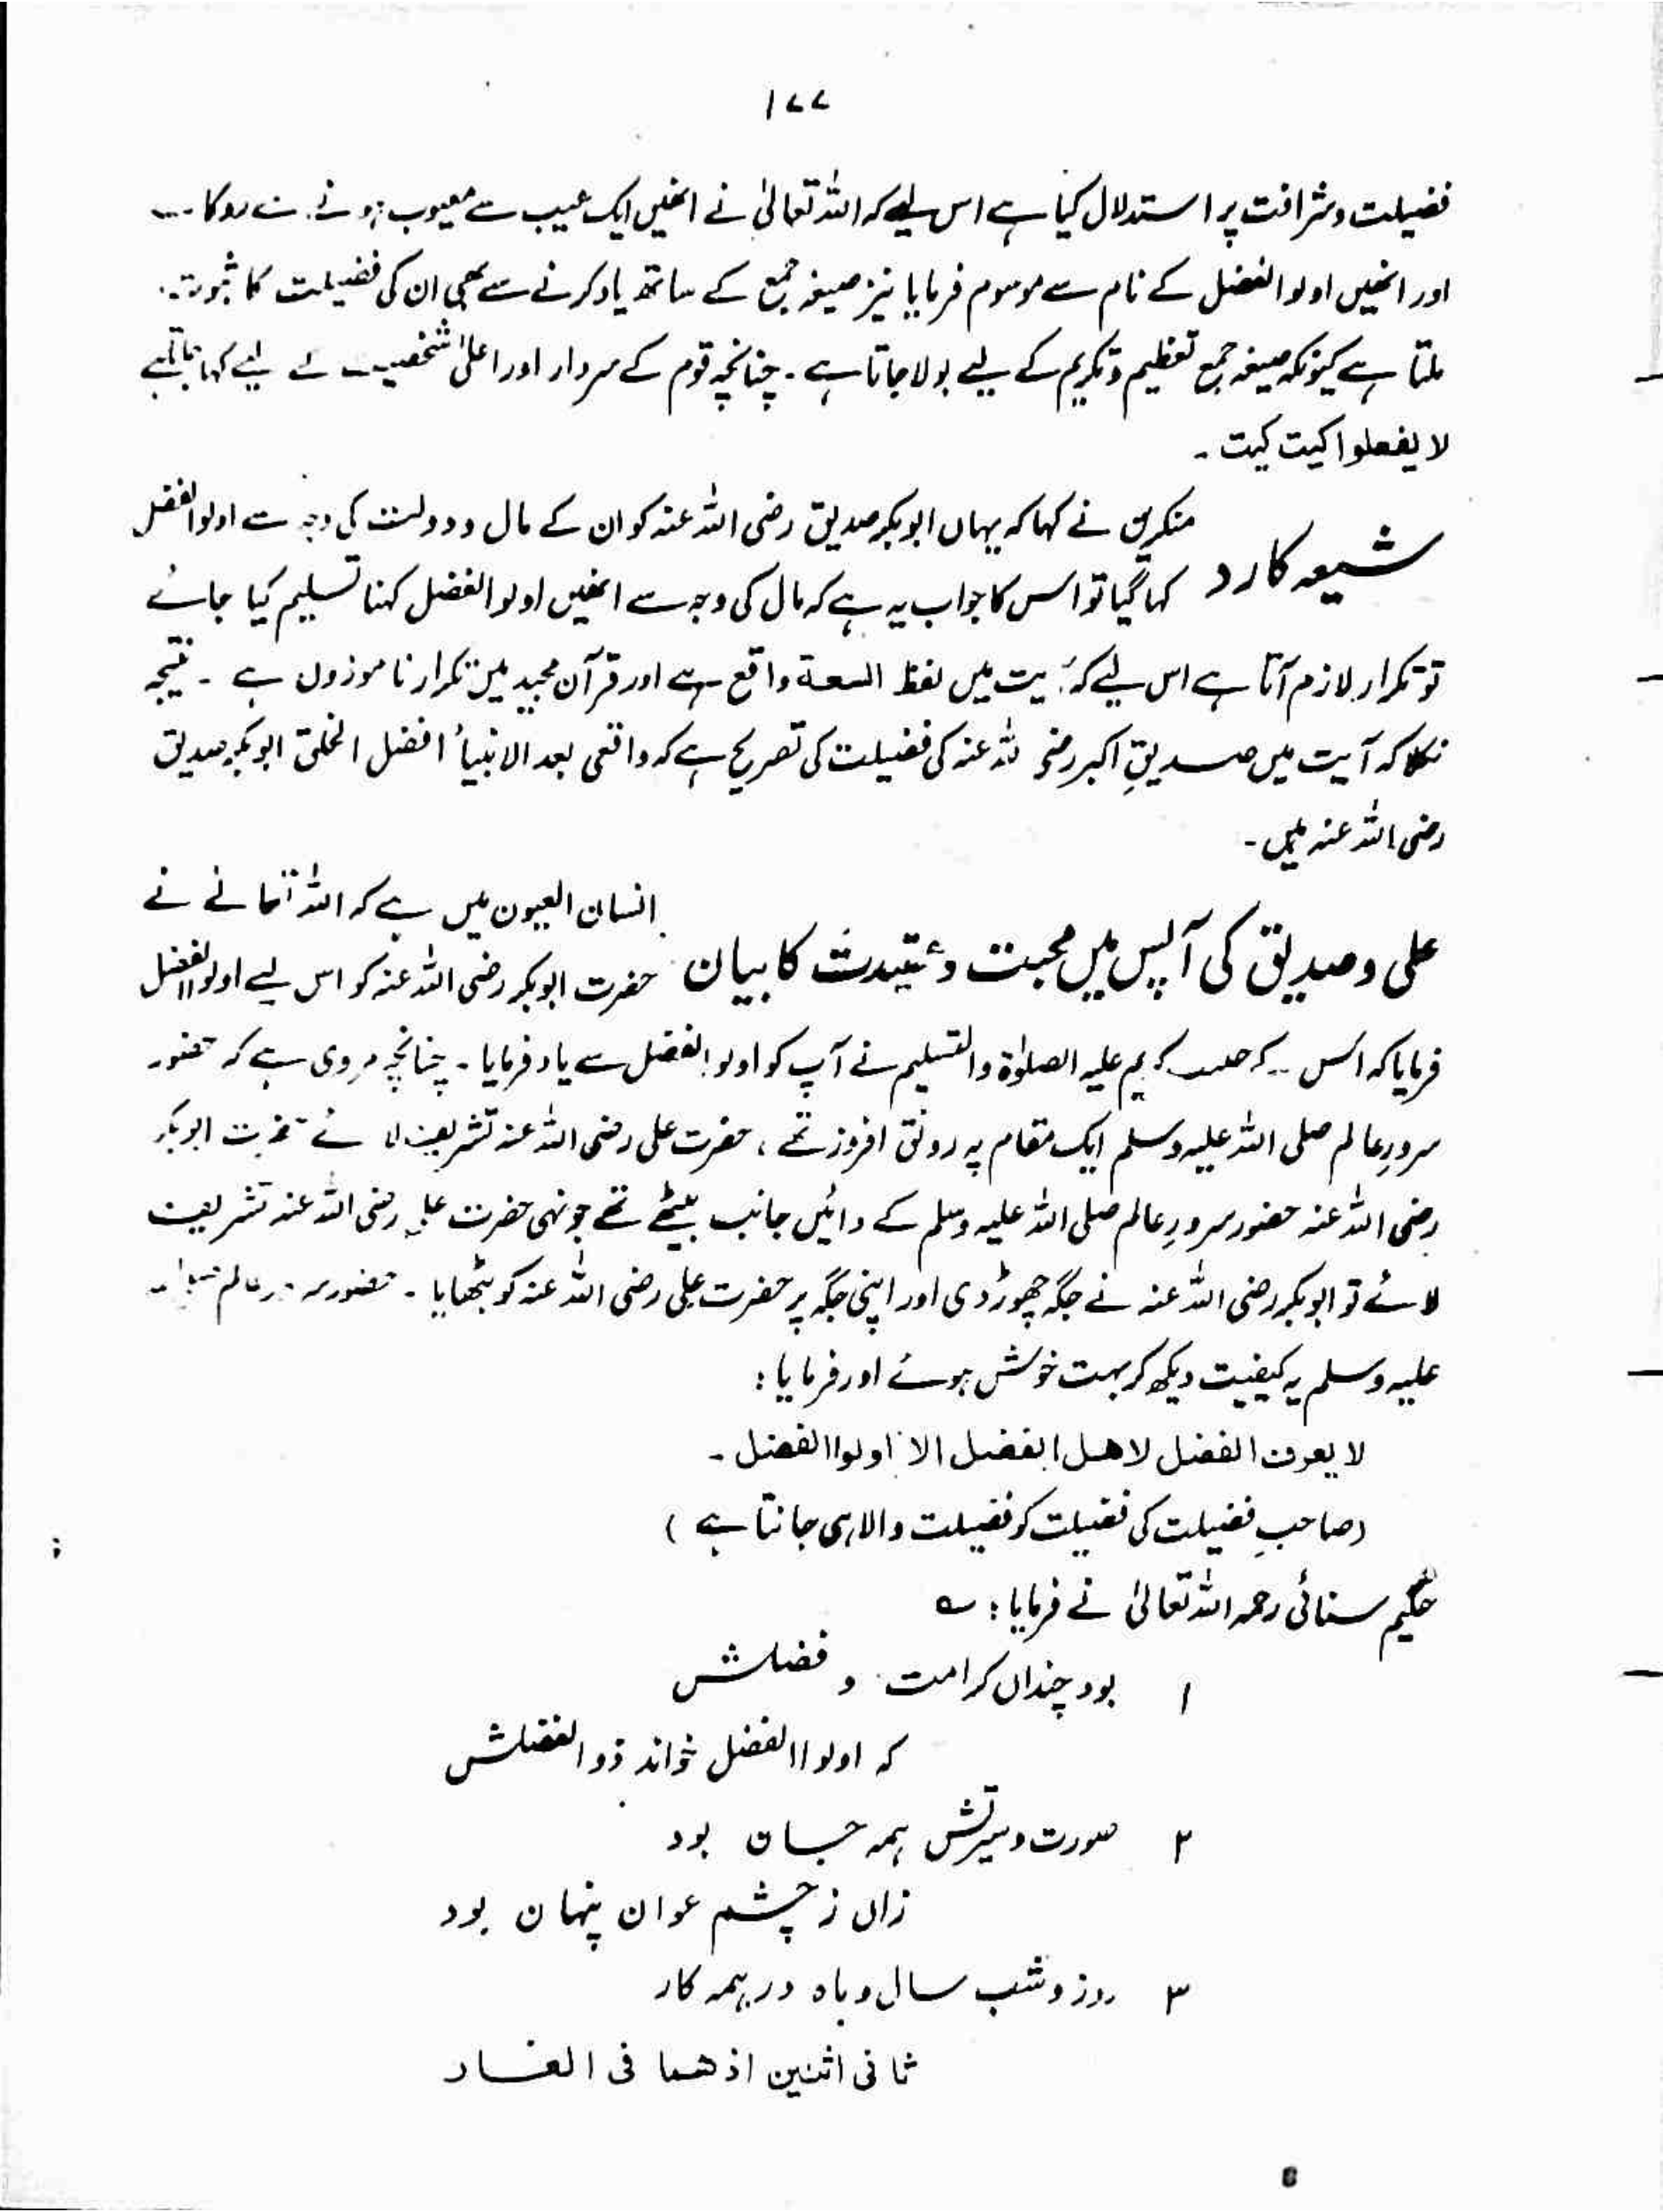 ۱۷۷
فضیلت و شرافت پر استدلال کیا ہے اس لیے کہ اللہ تعالیٰ نے انھیں ایک عیب سے معیوب ہونے سے روکا
اور انھیں اولوا الفضل کے نام سے موسوم فرمایا نیز صیغہ جمع کے ساتھ یاد کرنے سے بھی ان کی فضیلت کا ثبوت
ملتا ہے کیونکہ صیغہ جمع تعظیم و تکریم کے لیے بولا جاتا ہے ۔ چنانچہ قوم کے سردار اور اعلیٰ شخصیت کے لیے کہا جاتا ہے
لا یفعلوا کیت کیت ۔
شیعہ کا رد
منکرین نے کہا کہ یہاں ابوبکر صدیق رضی اللہ عنہ کو ان کے مال و دولت کی وجہ سے اولوا الفضل
کہا گیا تو اس کا جواب یہ ہے کہ مال کی وجہ سے انھیں اولوا الفضل کہنا تسلیم کیا جائے
تو تکرار لازم آتا ہے اس لیے کہ آیت میں لفظ السعة واقع ہے اور قرآن مجید میں تکرار نا موزوں ہے ۔ نتیجہ
نکلا کہ آیت میں صدیقِ اکبر رضی اللہ عنہ کی فضیلت کی تصریح ہے کہ واقعی بعد الانبیأ افضل الخلق ابوبکر صدیق
رضی اللہ عنہ ہیں ۔
علی و صدیق کی آپس میں محبت و عقیدت کا بیان
انسان العیون میں ہے کہ اللہ تعالےٰ نے
حضرت ابوبکر رضی اللہ عنہ کو اس لیے اولوا الفضل
فرمایا کہ اس کریم علیہ الصلوٰۃ والتسلیم نے آپ کو اولوا الفضل سے یاد فرمایا ۔ چنانچہ مروی ہے کہ حضور
سرورِ عالم صلی اللہ علیہ وسلم ایک مقام پہ رونق افروز تھے ، حضرت علی رضی اللہ عنہ تشریف لائے حضرت ابوبکر
رضی اللہ عنہ حضور سرورِ عالم صلی اللہ علیہ وسلم کے دائیں جانب بیٹھے تھے جونہی حضرت علی رضی اللہ عنہ تشریف
لائے تو ابوبکر رضی اللہ عنہ نے جگہ چھوڑ دی اور اپنی جگہ پر حضرت علی رضی اللہ عنہ کو بٹھایا ۔ حضور سرور عالم صلی اللہ
علیہ وسلم یہ کیفیت دیکھ کر بہت خوش ہوئے اور فرمایا :
لا یعرف الفضل لاهل الفضل الا اولوا الفضل ۔
(صاحبِ فضیلت کی فضیلت کو فضیلت والا ہی جانتا ہے )
حکیم سنائی رحمہ اللہ تعالیٰ نے فرمایا : ؎
۱ بود چنداں کرامت و فضلش
کہ اولوا الفضل خواند ذو الفضلش
۲ صورت و سیرتش ہمہ جان بود
زاں ز چشم عوان پنہان بود
۳ روز و شب سال و ماہ در ہمہ کار
ثانی اثنین اذ هما فی الغار